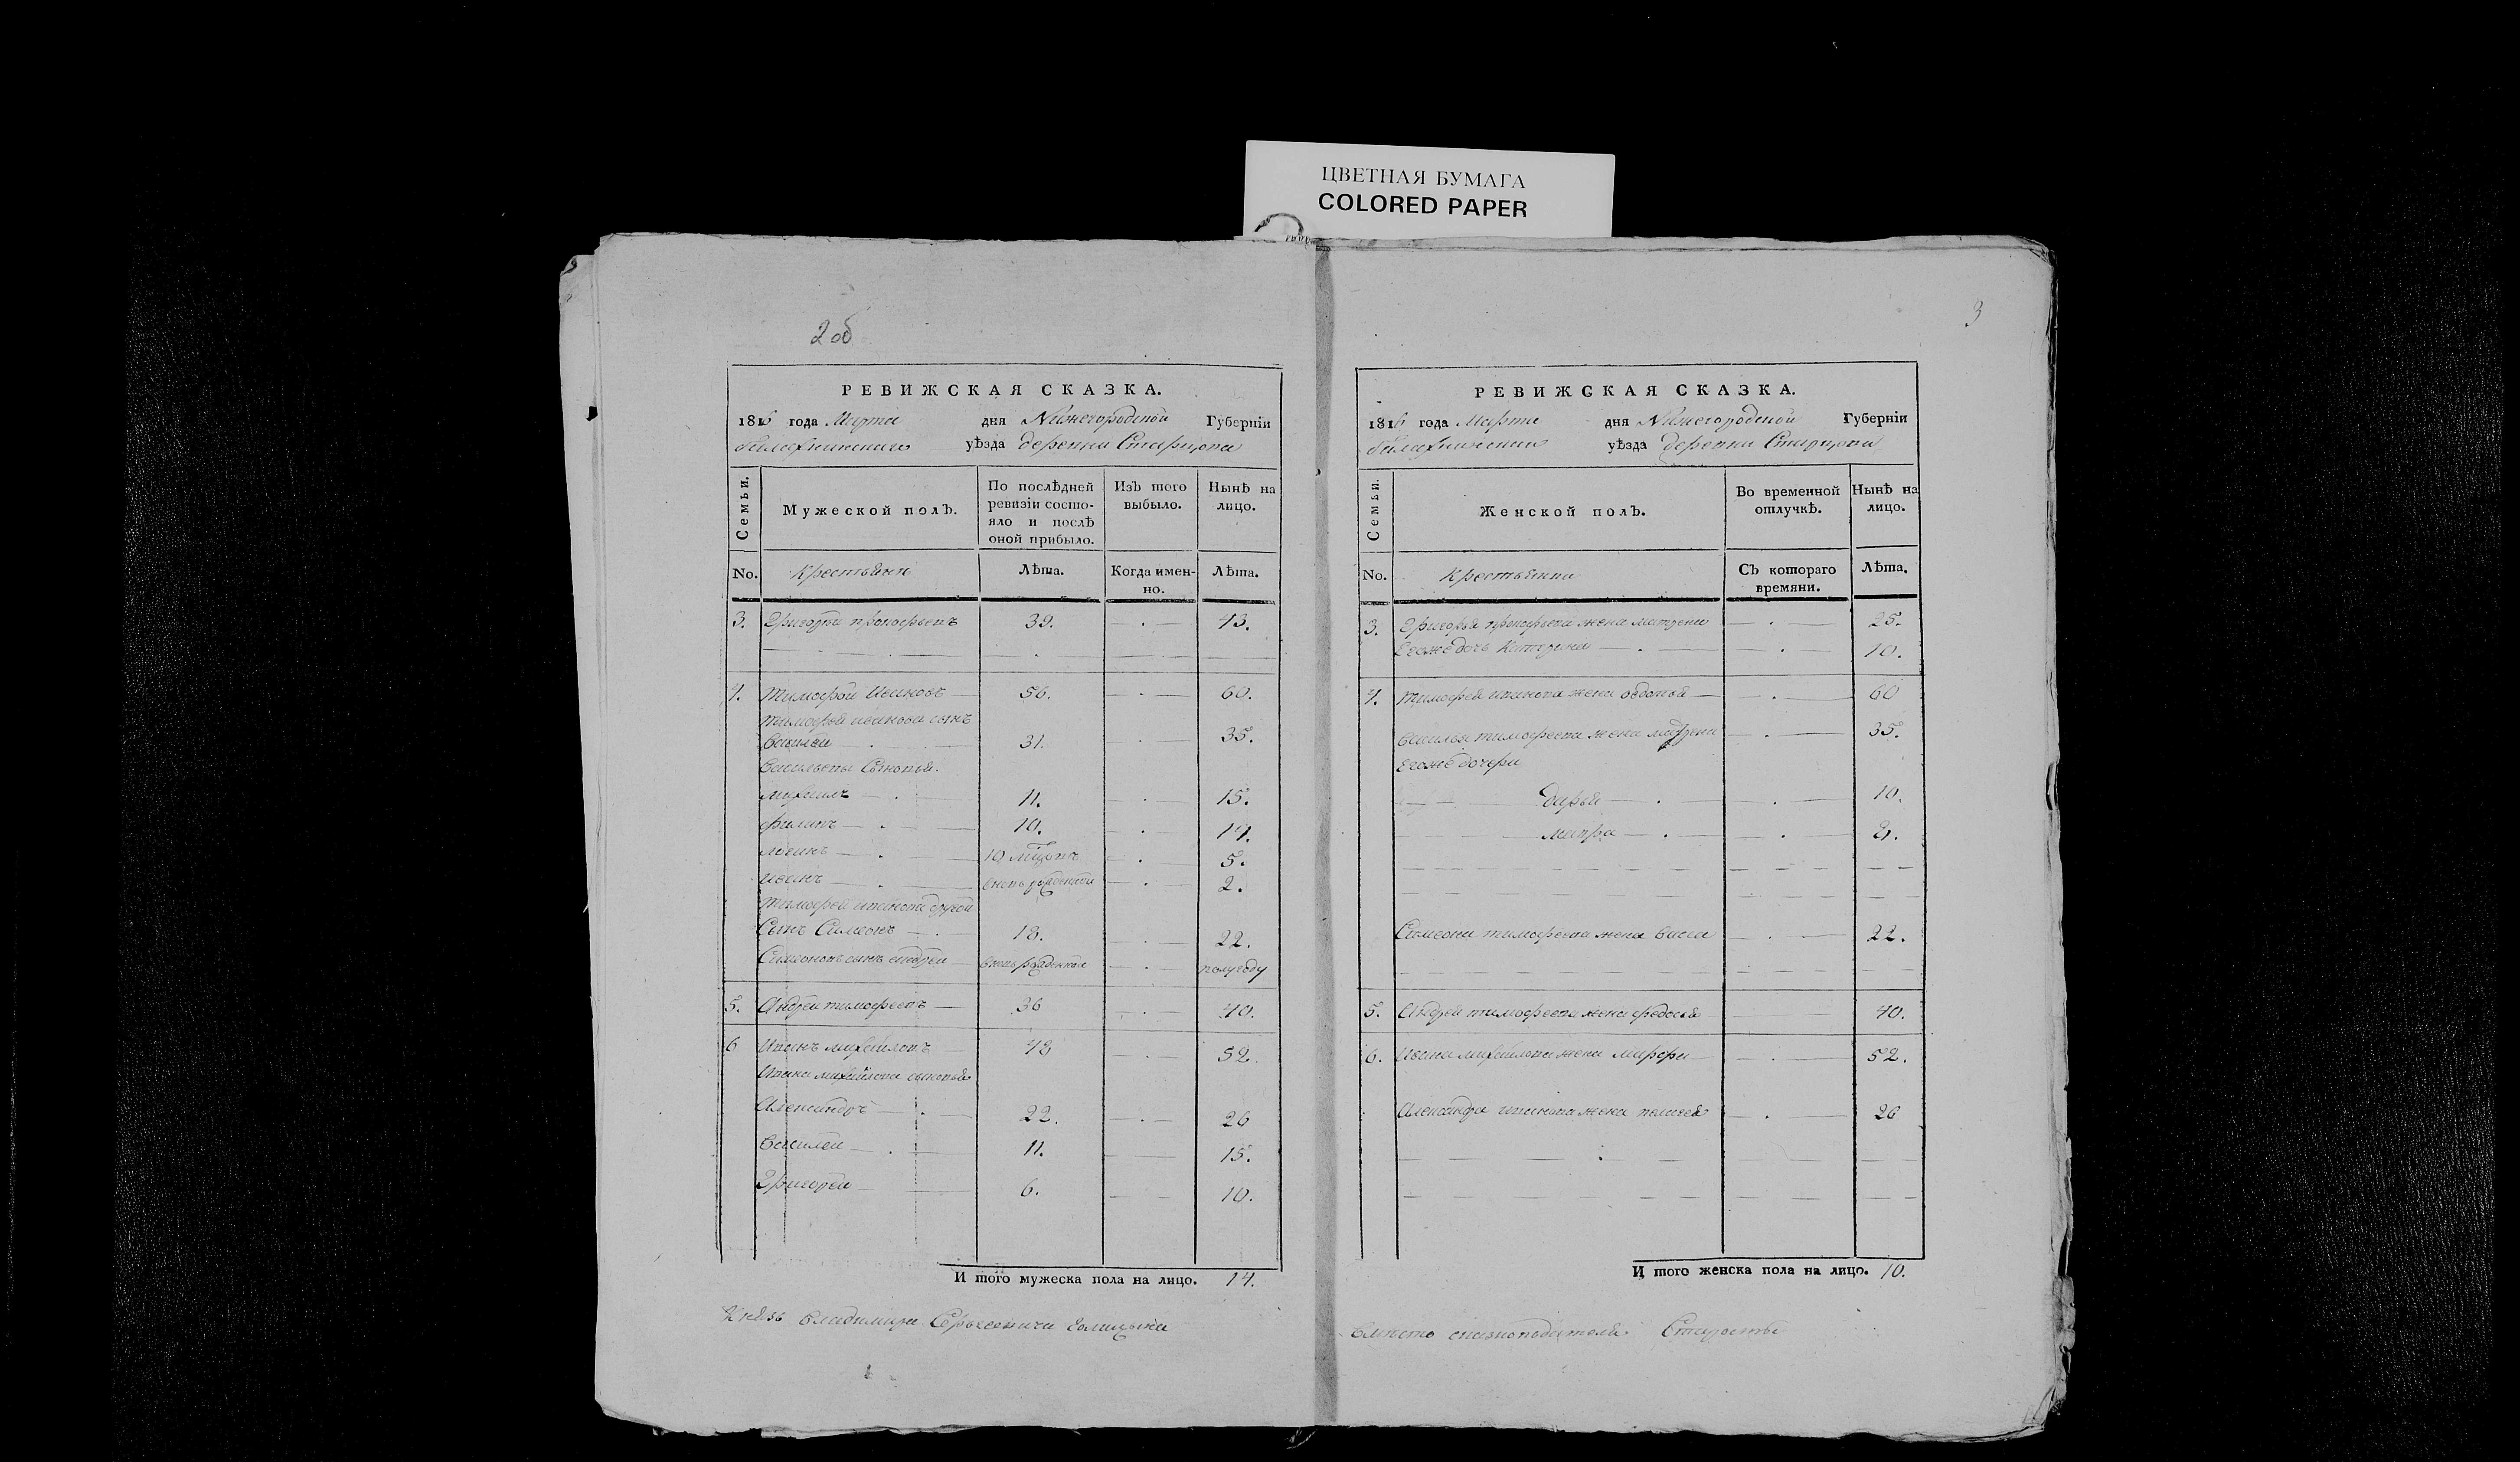 ЦВЕТНАЯ БУМАГА
COLORED PAPER
2 об
РЕВИЖСКАЯ СКАЗКА.
1816 года Марта дня Нижегородской Губерніи
балахнинскаго уѣзда деревни Старцова
Семьи. Мужеской полЪ. По послѣдней ревизіи состояло и послѣ оной прибыло. ИзЪ того выбыло. Нынѣ на лицо.
No. Крестьянъ Лѣта. Когда именно. Лѣта.
3. Григорей прокофьевъ 39. 43.
4. Тимофей Ивановъ 56. 60.
тимофея иванова сынъ
василей 31. 35.
Васильевы Сыновья.
михаилъ 11. 15.
филипъ 10. 14.
10 мѣсяцовъ 5.
иванъ вновь рожденной 2.
тимофея иванова другой
Сынъ Симеонъ 18. 22.
Симеоновъ сынъ андрей вновь рожденной полугоду
5. Андрей тимофеевъ 36 40.
6 Иванъ михайловъ 48 52.
Ивана михайлова сыновья
Александръ 22. 26
Василей 11. 15.
Григорей 6. 10.
И того мужеска пола на лицо. 14.
Князь Владимира Сергеевича Голицына
3
РЕВИЖСКАЯ СКАЗКА.
1816 года Марта дня Нижегородской Губерніи
балахнинскаго уѣзда деревни Старцова
Семьи. Женской полЪ. Во временной отлучкѣ. Нынѣ на лицо.
No. Крестьянка СЪ котораго времяни. Лѣта.
3. Григорья прокофьева жена матрена 25.
Егоже дочь Катерина 10.
4. тимофея иванова жена овдотья 60
василья тимофеева жена матрена 35.
Егоже дочери
дарья 10.
8.
Симеона тимофеева жена 22.
5. Андрея тимофеева жена федосья 40.
6. Ивана михайлова жена марфа 52.
Александра иванова жена пелагея 26
И того женска пола на лицо. 10.
вместо сказкоподателя Старосты